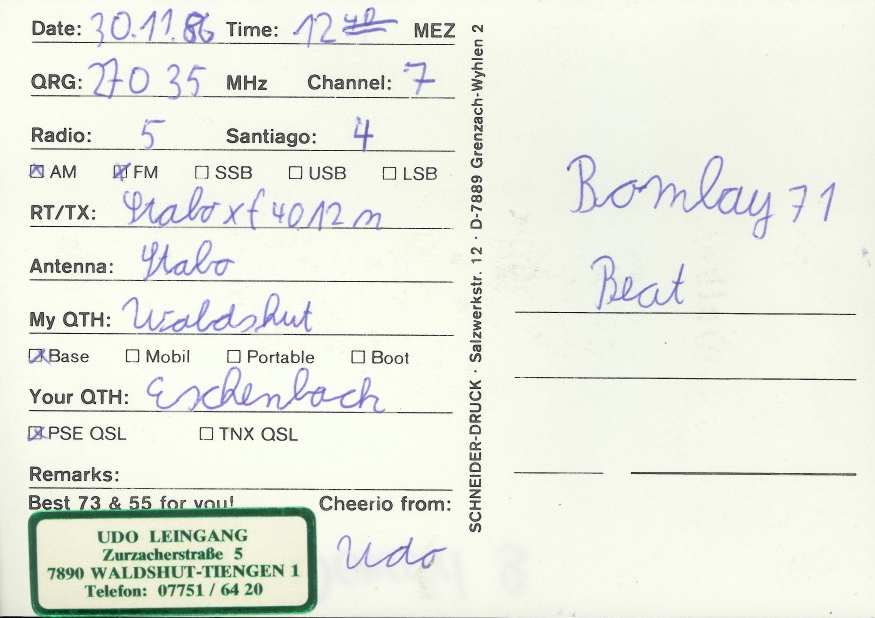 Date: 30.11.86 Time: 12 40 MEZ
QRG: 270 35 MHz Channel: 7
Radio: 5 Santiago: 4
AM FM SSB USB LSB
RT/TX: Stabo xf 4012 n
Antenna: Stabo
My QTH: Waldshut
Base Mobil Portable Boot
Your QTH: Eschenbach
PSE QSL TNX QSL
Remarks:
Best 73 & 55 for you! Cheerio from:
Udo
UDO LEINGANG
Zurzacherstraße 5
7890 WALDSHUT-TIENGEN 1
Telefon: 07751 / 64 20
SCHNEIDER-DRUCK · Salzwerkstr. 12 · D-7889 Grenzach-Wyhlen 2
Bomlay 71
Beat